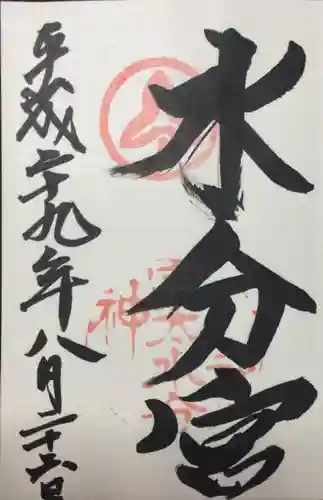 水分宮
平成二十九年八月二十六日